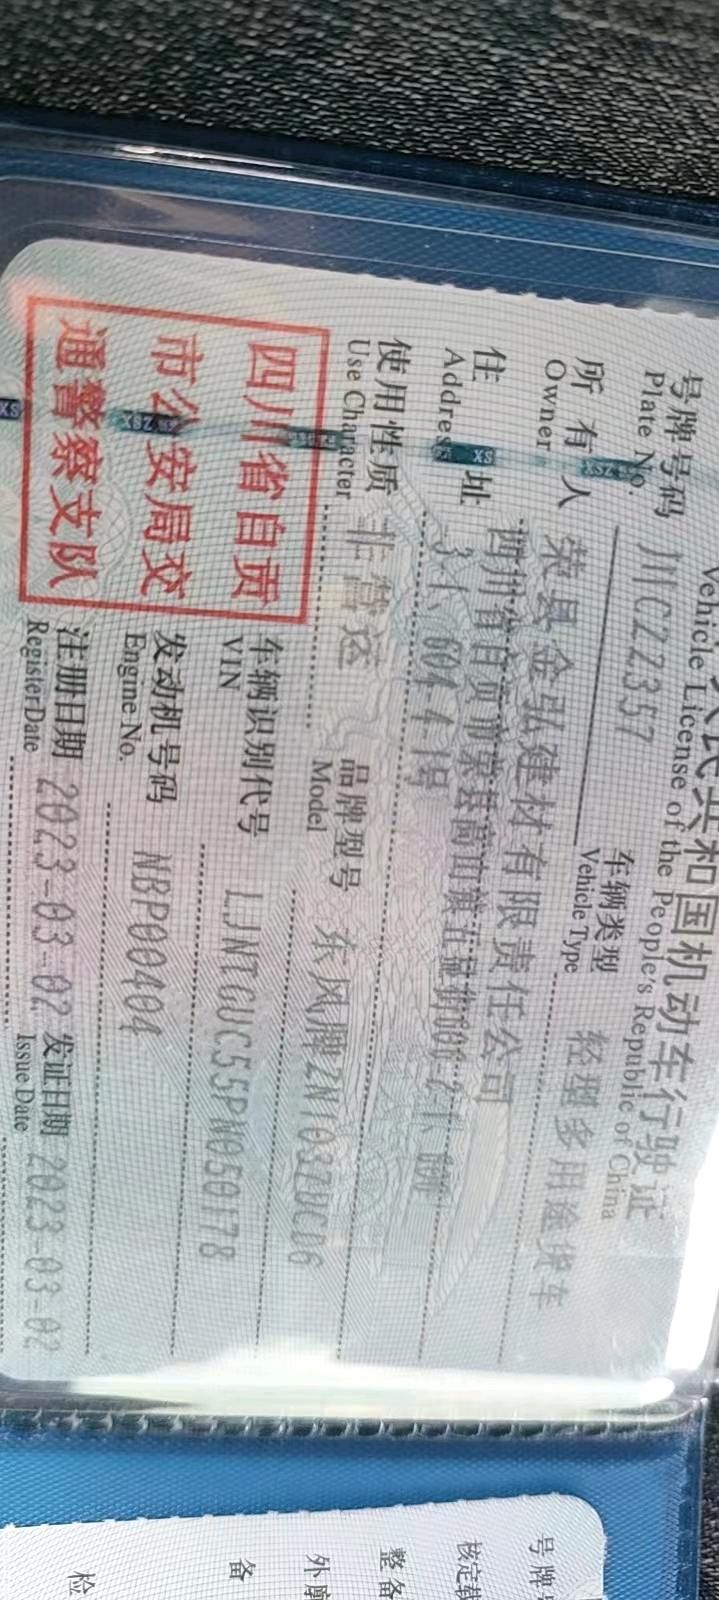 人民共和国机动车行驶证
Vehicle License of the People's Republic of China
号牌号码 川CZ2357 车辆类型 轻型多用途货车
Plate No. Vehicle Type
所有人 荣县金弘建材有限责任公司
Owner
住址 四川省自贡市荣县高山镇
Address 604-4-1号
使用性质 非营运 品牌型号 东风牌ZN1037UCD6
Use Character Model
四川省自贡
市公安局交
通警察支队
车辆识别代号 LJNTGUC55PN050178
VIN
发动机号码 NBP00404
Engine No.
注册日期 2023-03-02 发证日期 2023-03-02
Register Date Issue Date
号牌
核定载
整备
外廓
备
检